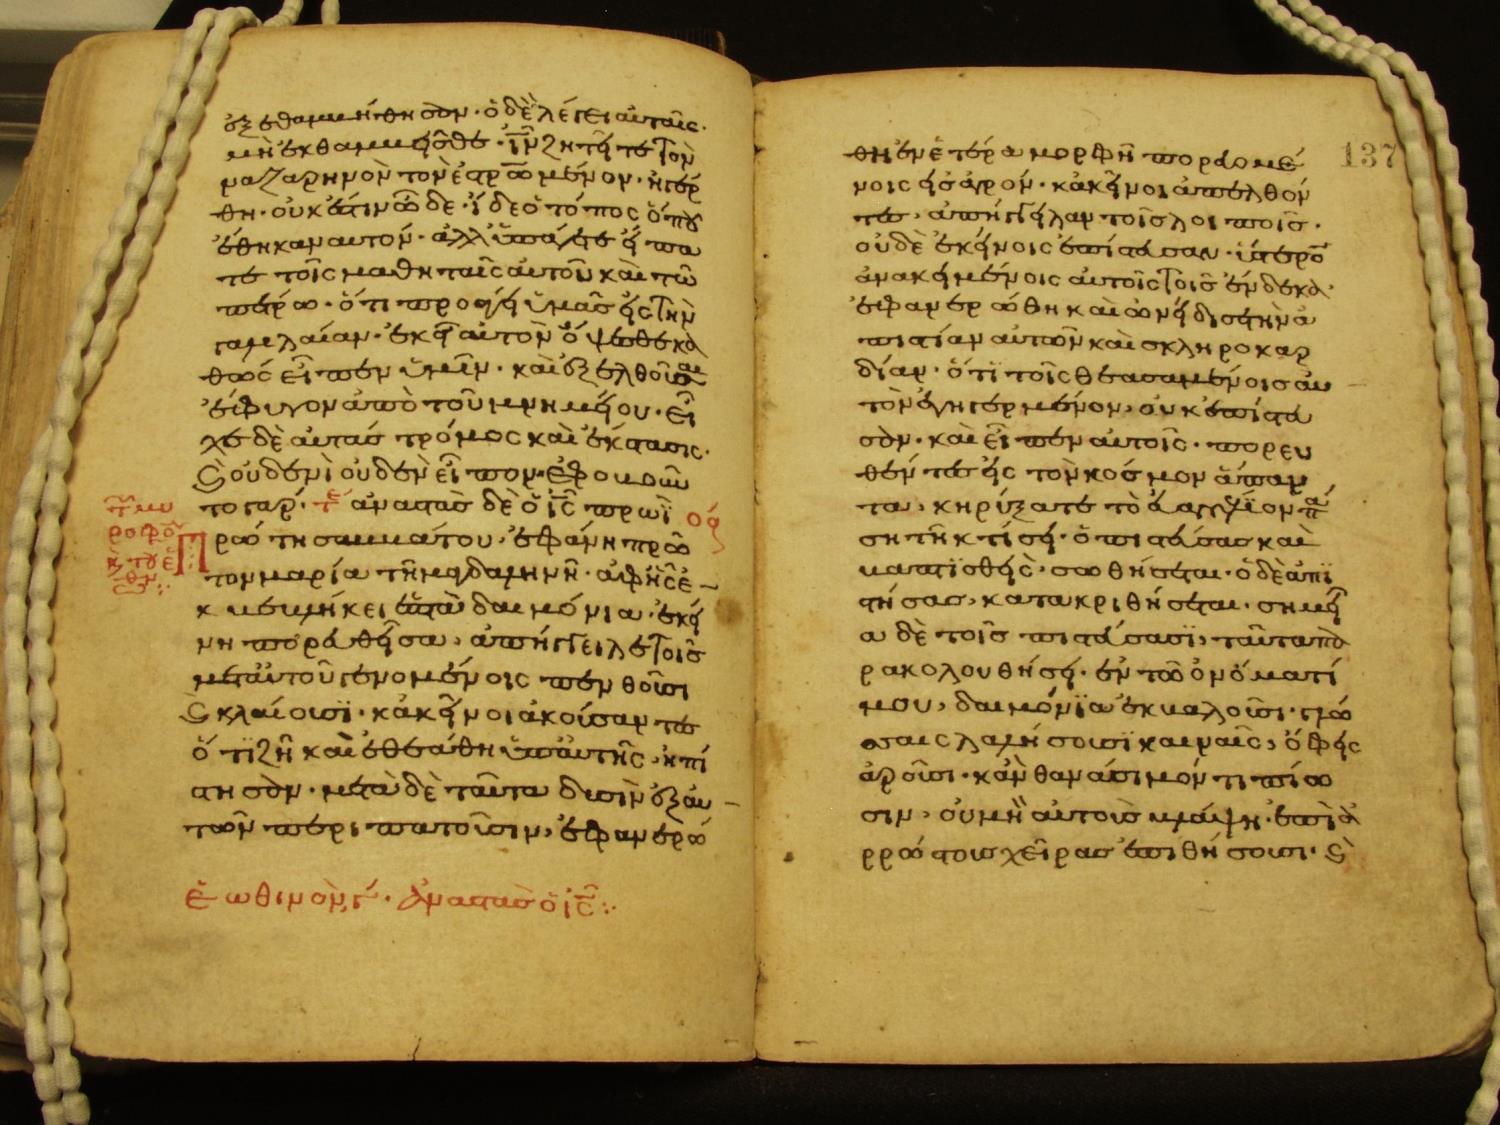 ἐξεθαμβήθησαν· ὁ δὲ λέγει αὐταῖς·
μὴ ἐκθαμβεῖσθε· ἰν ζητεῖτε τὸν
ναζαρηνὸν τὸν ἐσταυρωμένον· ἠγέρ
θη· οὐκ ἔστιν ὧδε· ἴδε ὁ τόπος ὅπου
ἔθηκαν αὐτόν· ἀλλ' ὑπάγετε εἴπα
τε τοῖς μαθηταῖς αὐτοῦ καὶ τῶ
πέτρω· ὅτι προάγει ὑμᾶς εἰς τὴν
γαλιλαίαν· ἐκεῖ αὐτὸν ὄψεσθε κα
θὼς εἶπεν ὑμῖν· καὶ ἐξελθοῦσαι
ἔφυγον ἀπὸ τοῦ μνημείου· εἶ
χε δὲ αὐτὰς τρόμος καὶ ἔκστασις·
καὶ οὐδενὶ οὐδὲν εἶπον· ἐφοβοῦν
το γάρ· ἀναστὰς δὲ ὁ ις πρωῒ
πρώτη σαββάτου· ἐφάνη πρῶ
τον μαρία τῆ μαγδαληνῆ· ἀφ' ἧς ἐ
κβεβλήκει ἑπτὰ δαιμόνια· ἐκεί
νη πορευθεῖσα, ἀπήγγειλε τοῖς
μετ' αὐτοῦ γενομένοις πενθοῦσι
καὶ κλαίουσι· κἀκεῖνοι ἀκούσαντες
ὅτι ζῆ καὶ ἐθεάθη ὑπ' αὐτῆς, ἠπί
στησαν· μετὰ δὲ ταῦτα δυσὶν ἐξ αὐ
τῶν περιπατοῦσιν, ἐφανερώ
ἑωθινὸν γ· ἀναστὰς ὁ ις
137
θη ἐν ἑτέρα μορφῆ πορευομέ
νοις εἰς ἀγρόν· κἀκεῖνοι ἀπελθόν
τες, ἀπήγγειλαν τοῖς λοιποῖς·
οὐδὲ ἐκείνοις ἐπίστευσαν· ὕστερον
ἀνακειμένοις αὐτοῖς τοῖς ἕνδεκα
ἐφανερώθη καὶ ὠνείδισε τὴν ἀ
πιστίαν αὐτῶν καὶ σκληροκαρ
δίαν· ὅτι τοῖς θεασαμένοις αὐ
τὸν ἐγηγερμένον, οὐκ ἐπίστευ
σαν· καὶ εἶπεν αὐτοῖς· πορευ
θέντες εἰς τὸν κόσμον ἅπαν
τα, κηρύξατε τὸ εὐαγγέλιον πά
ση τῆ κτίσει· ὁ πιστεύσας καὶ
βαπτισθεὶς, σωθήσεται· ὁ δὲ ἀπι
στήσας, κατακριθήσεται· σημεῖ
α δὲ τοῖς πιστεύσασι, ταῦτα πα
ρακολουθήσει· ἐν τῶ ὀνόματί
μου, δαιμόνια ἐκβαλοῦσι· γλώσ
σαις λαλήσουσι καιναῖς, ὄφεις
ἀροῦσι· κἂν θανάσιμόν τι πίω
σιν, οὐ μὴ αὐτοὺς βλάψη· ἐπὶ ἀ
ρρώστους χεῖρας ἐπιθήσουσι· καὶ